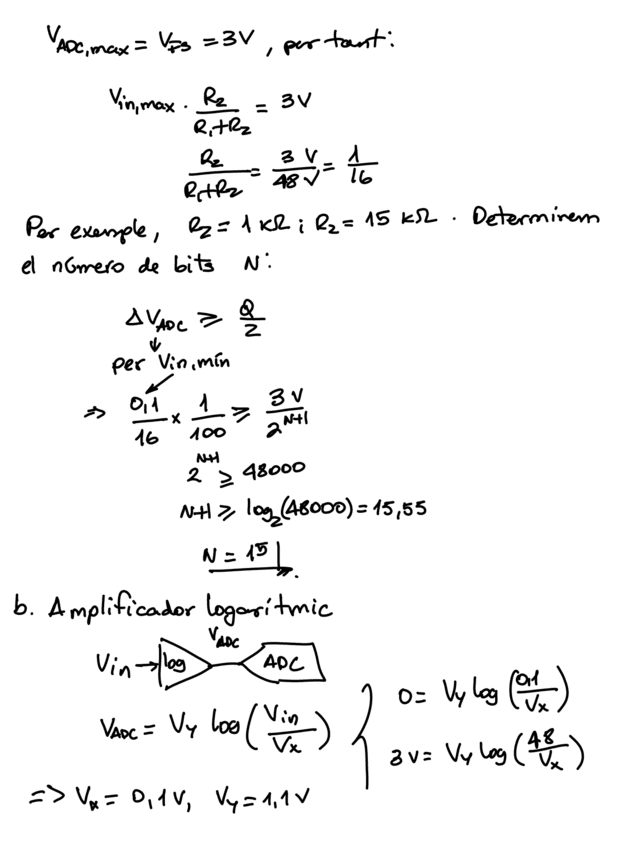 V_ADC,max = V_FS = 3V, per tant:
Vin,max · R2/(R1+R2) = 3V
R2/(R1+R2) = 3 V/48 V = 1/16
Per exemple, R2 = 1 kΩ i R2 = 15 kΩ. Determinem
el número de bits N:
ΔV_ADC ≥ Q/2
↓
per Vin,mín
=> 0,1/16 × 1/100 ≥ 3 V/2^(N+1)
2^(N+1) ≥ 48000
N+1 ≥ log2(48000) = 15,55
N = 15
b. Amplificador logarítmic
V_ADC
Vin → log ADC
V_ADC = Vy log(Vin/Vx)
0 = Vy log(0,1/Vx)
3V = Vy log(48/Vx)
=> Vx = 0,1V, Vy = 1,1V